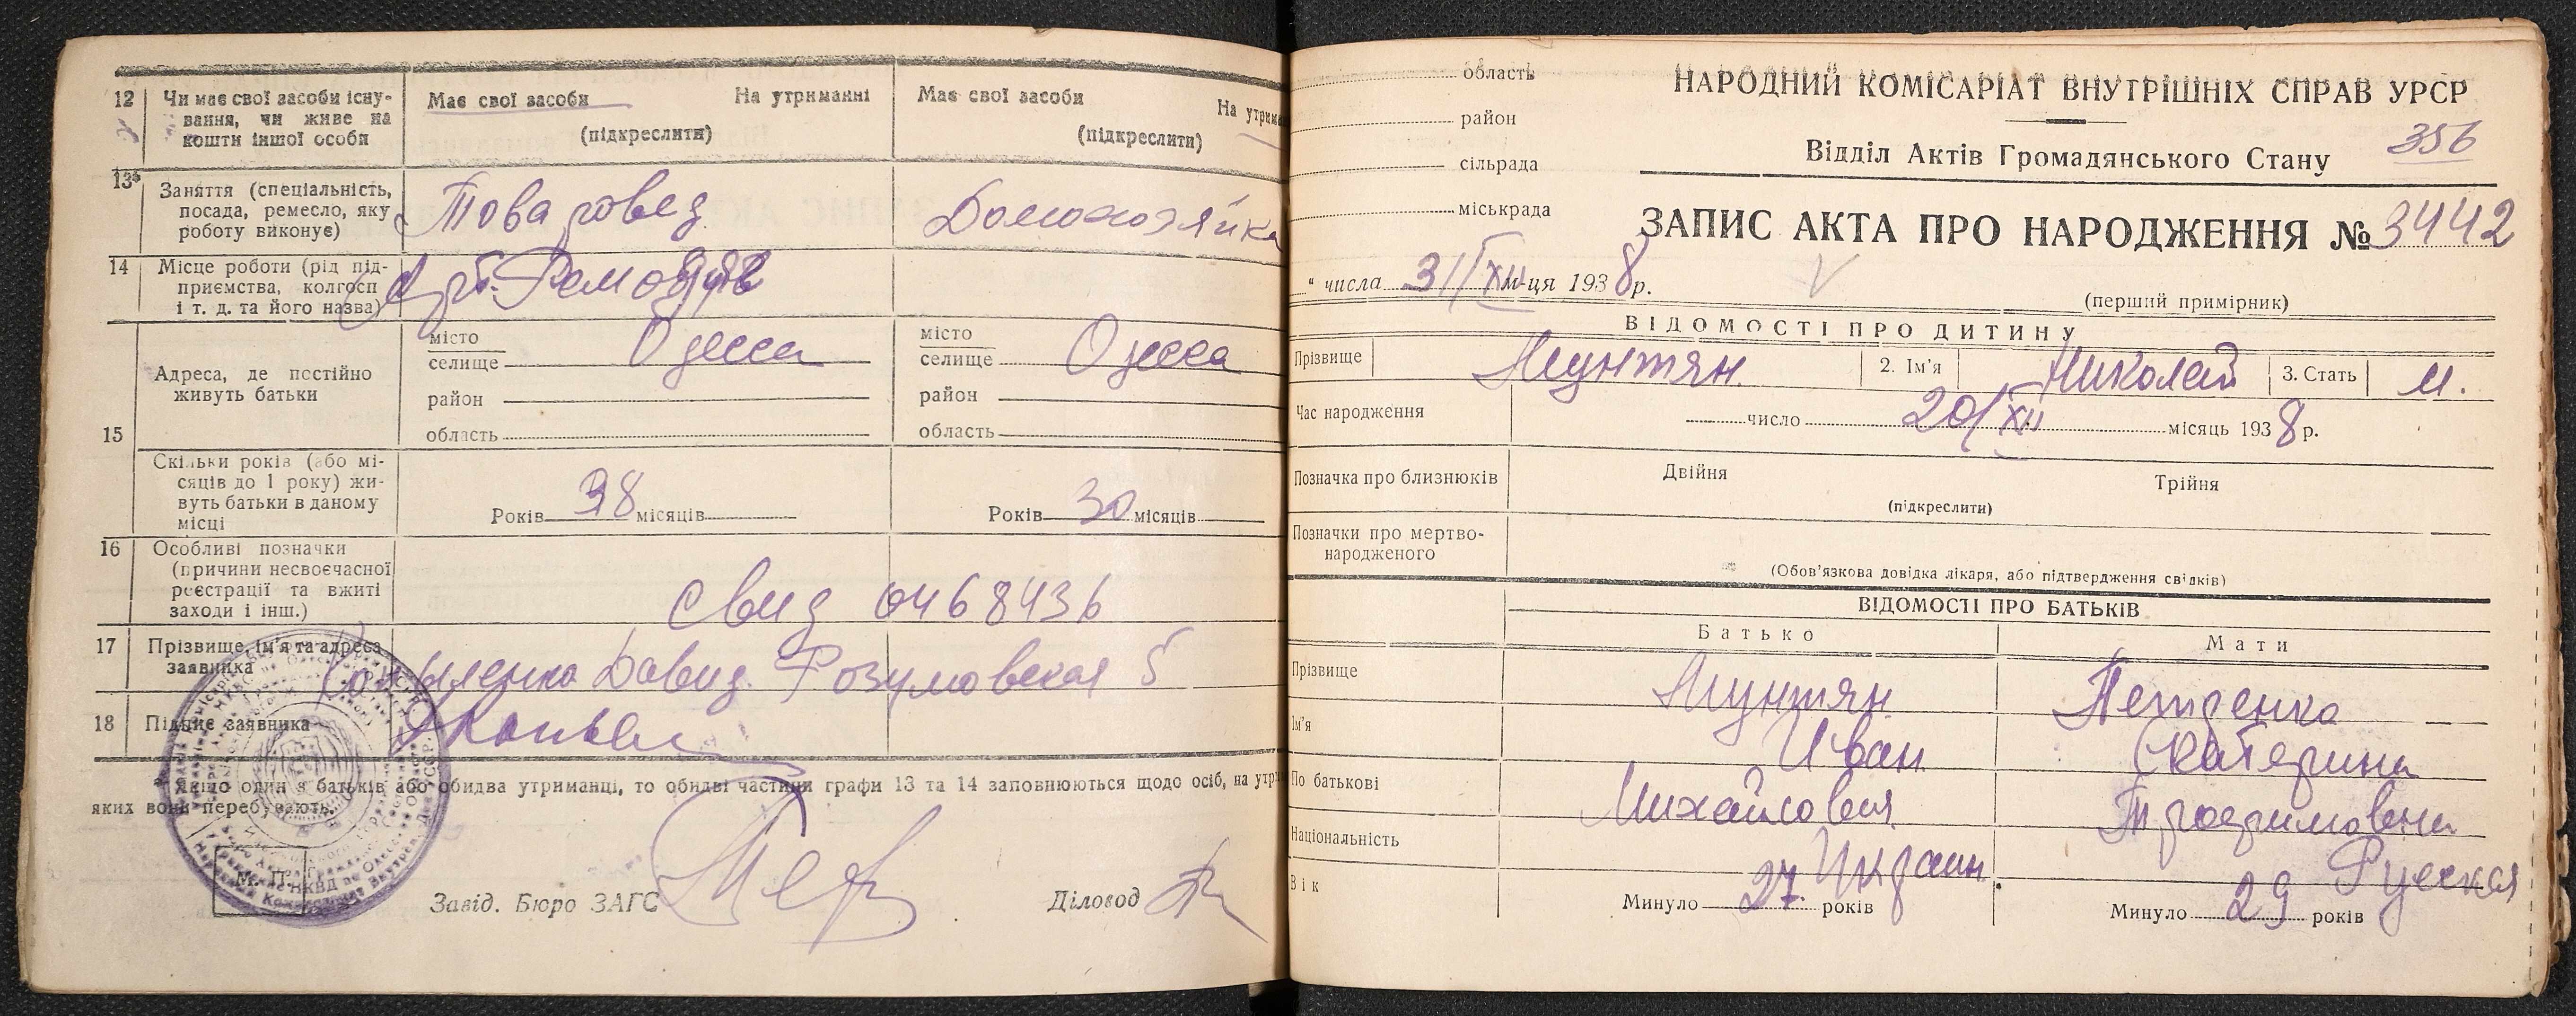 12 Чи має свої засоби існу-
вання, чи живе на
кошти іншої особи
Має свої засоби На утриманні
(підкреслити)
Має свої засоби На утрима
(підкреслити)
13 Заняття (спеціальність,
посада, ремесло, яку
роботу виконує)
Товаровед
Домохозяйка
14 Місце роботи (рід під-
приємства, колгосп
і т. д. та його назва)
15 Адреса, де постійно
живуть батьки
місто
селище Одесса
район
область
місто
селище Одесса
район
область
Скільки років (або мі-
сяців до 1 року) жи-
вуть батьки в даному
місці
Років 38 місяців
Років 30 місяців
16 Особливі позначки
(причини несвоєчасної
реєстрації та вжиті
заходи і інш.)
Свид 0468436
17 Прізвище, ім'я та адреса
заявника
Давид Розумовская 5
18 Підпис заявника
Якщо один з батьків або обидва утриманці, то обидві частини графи 13 та 14 заповнюються щодо осіб, на утри
яких вони перебувають.
М. П.
Завід. Бюро ЗАГС
Діловод
область
район
сільрада
міськрада
НАРОДНИЙ КОМІСАРІАТ ВНУТРІШНІХ СПРАВ УРСР
Відділ Актів Громадянського Стану
356
ЗАПИС АКТА ПРО НАРОДЖЕННЯ № 3442
" числа 31/XII м-ця 1938 р.
(перший примірник)
ВІДОМОСТІ ПРО ДИТИНУ
Прізвище Мунтян 2. Ім'я Николай 3. Стать м.
Час народження число 20/XII місяць 1938 р.
Позначка про близнюків Двійня Трійня
(підкреслити)
Позначки про мертво-
народженого
(Обов'язкова довідка лікаря, або підтвердження свідків)
ВІДОМОСТІ ПРО БАТЬКІВ
Батько Мати
Прізвище Мунтян Петренко
Ім'я Иван Екатерина
По батькові Михайлович Трофимовена
Національність Украин. Русская
Вік Минуло 27 років Минуло 29 років